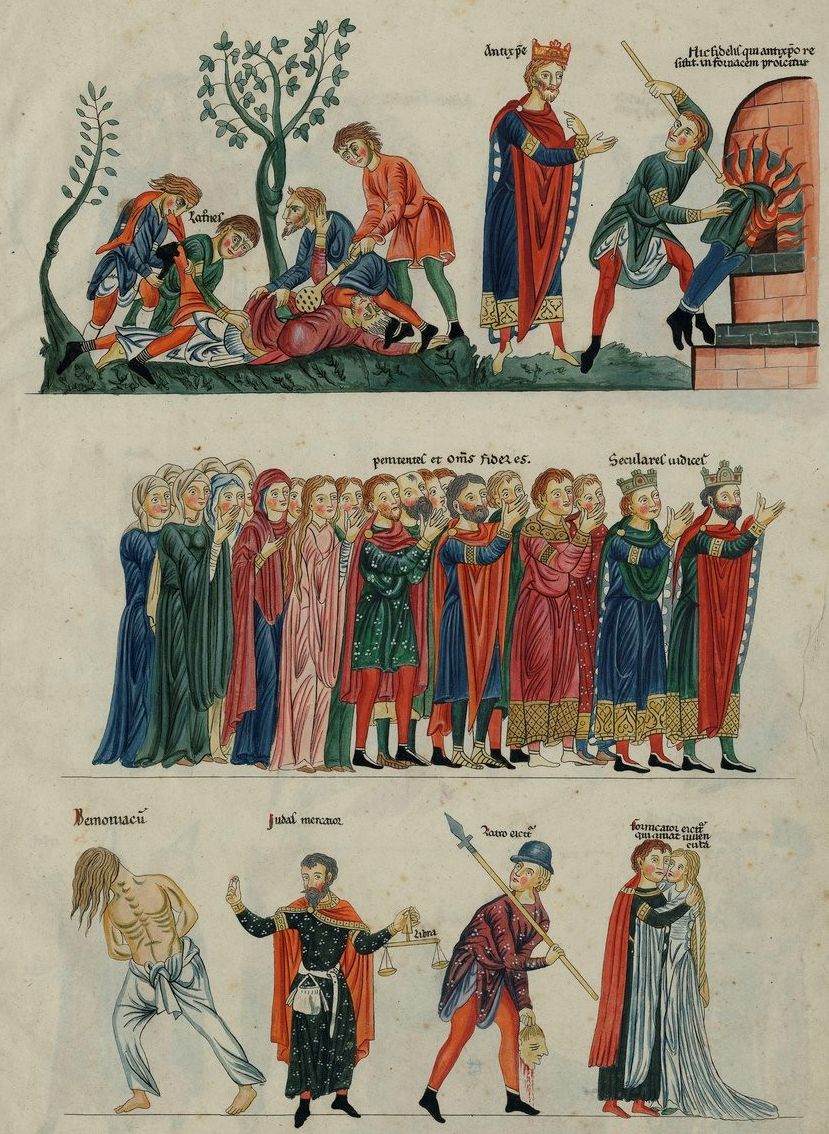 Antixp̄e
Hic fidelis qui antixp̄o re
sistit. in fornacem proicitur
penitentes et om̄s fideles.
Seculares iudices
Demoniacū
Judas mercator
Libra
Latro
fornicator
qui amat iuuen